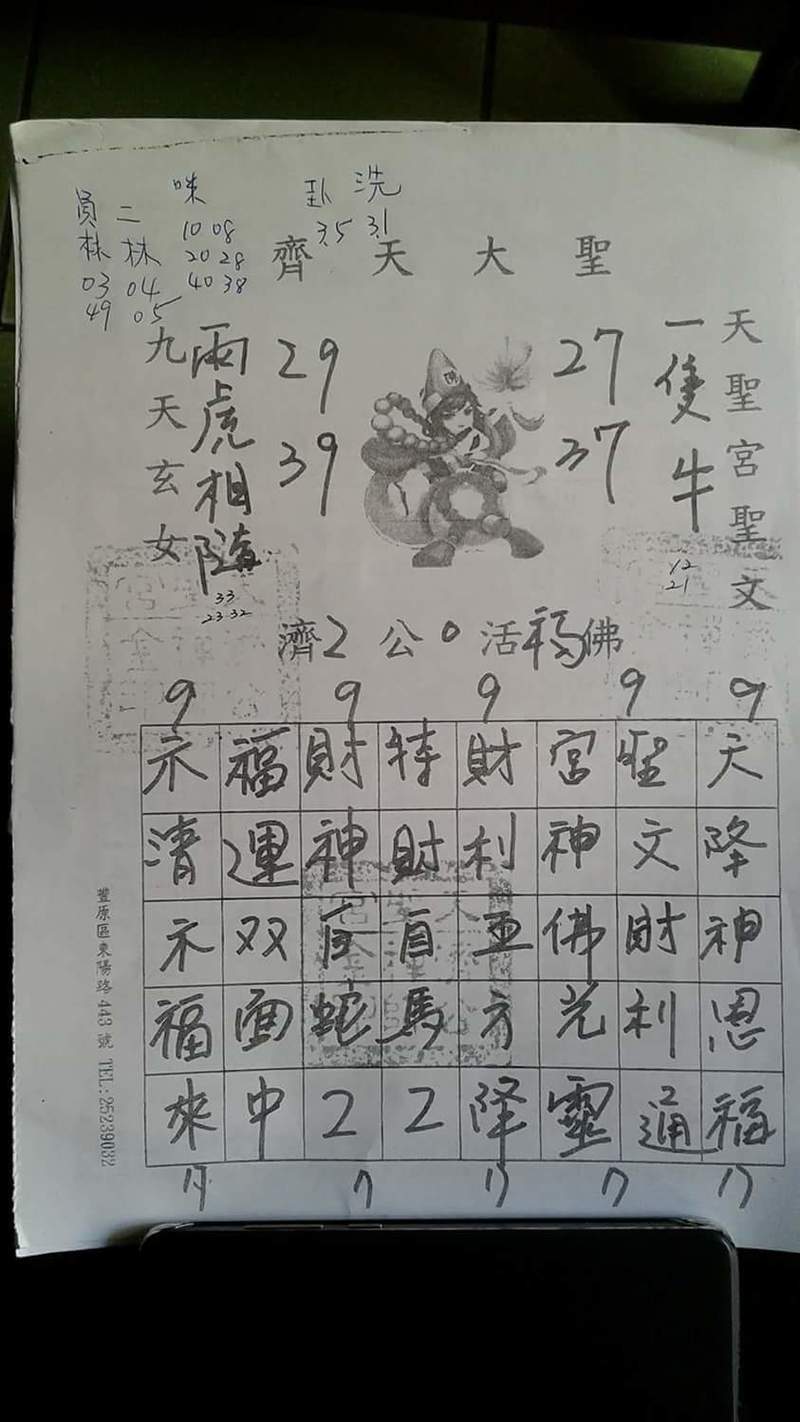 員林 03 49
二林 04 05
咪 10 08
20 28
40 38
卦 35
洗 31
齊天大聖
天聖宮聖文
一隻牛
12
21
27
37
29
39
兩虎相隨
33
23 32
九天玄女
濟2公0活福佛
9 9 9 9 9
天降神恩福
聖文財利通
宮神佛光靈
財利亚方降
特財百馬2
財神百蛇2
福運双面中
示清示福來
17 7 17 7 17
豐原區東陽路443號 TEL:25239032